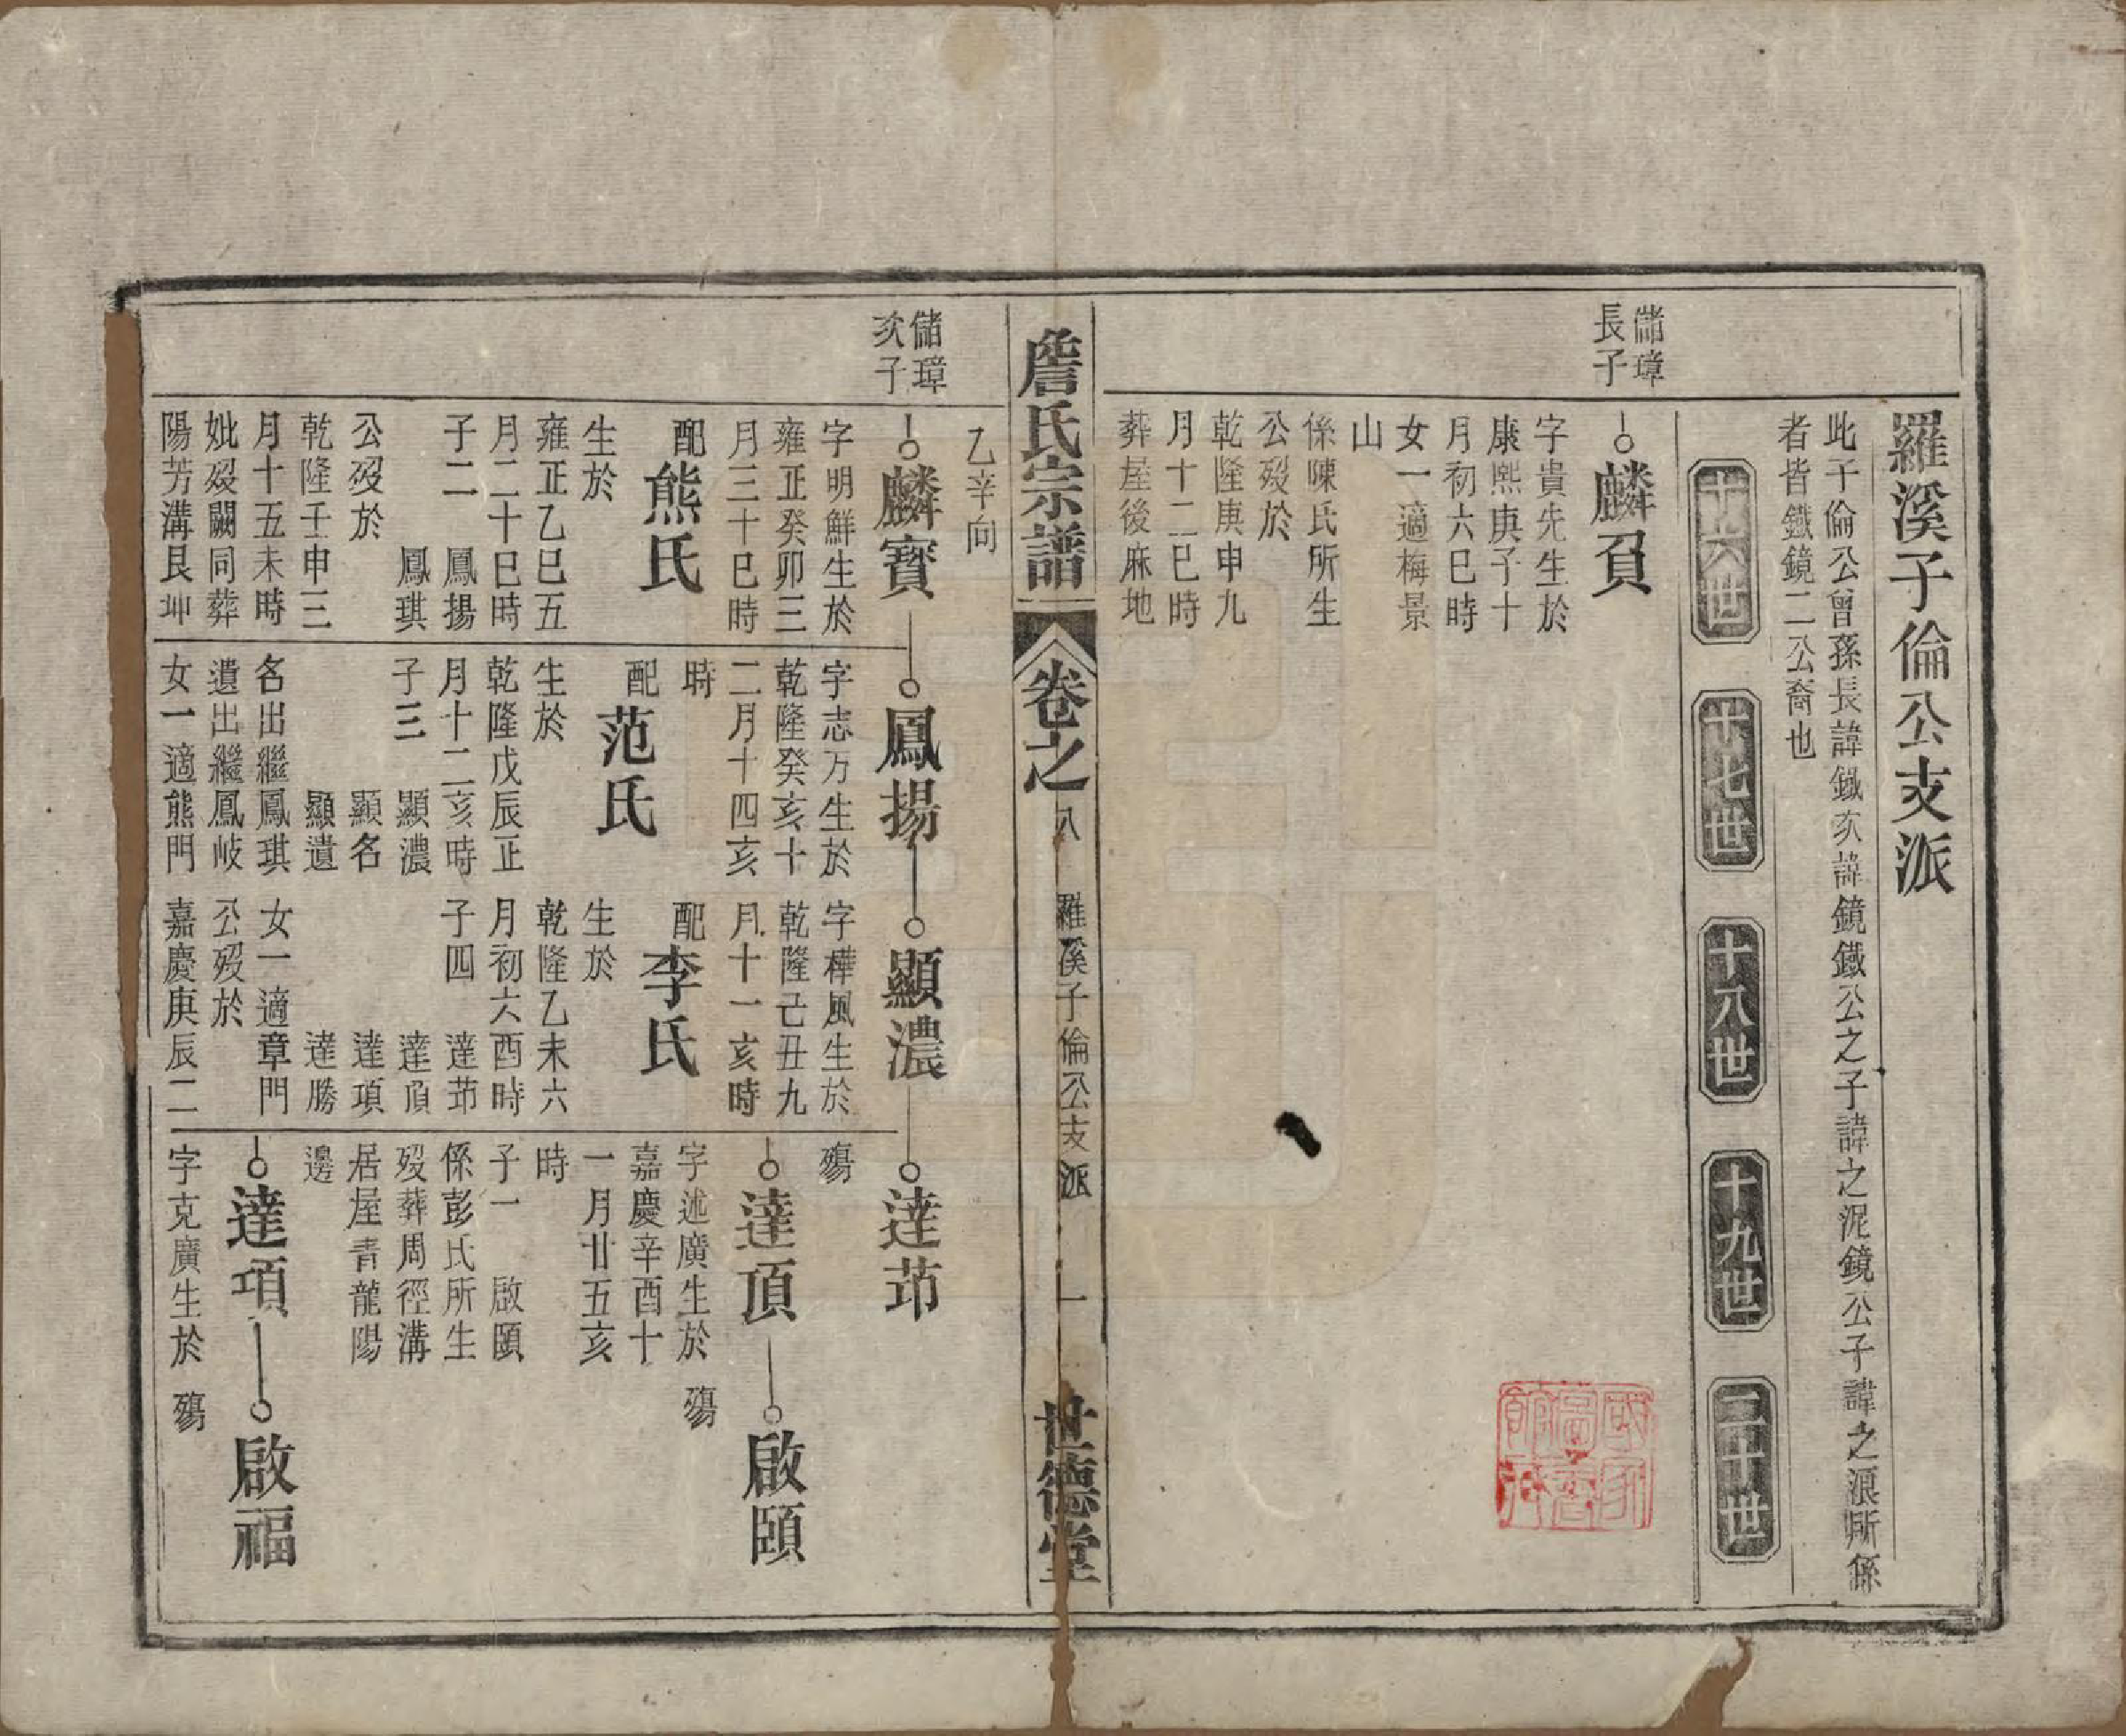 羅溪子倫公支派
此子倫公曾孫長諱鐵次諱鏡鐵公之子諱之泥鏡公子諱之浪所係
者皆鐵鏡二公裔也
十六世
十七世
十八世
十九世
二十世
儲璋
長子
麟習
字貴先生於
康熙庚子十
月初六巳時
女一適梅景
山
係陳氏所生
公歿於
乾隆庚申九
月十二巳時
葬屋後麻地
詹氏宗譜
卷之八
羅溪子倫公支派
一
世德堂
乙辛向
儲璋
次子
麟寶
字明鮮生於
雍正癸卯三
月三十巳時
配熊氏
生於
雍正乙巳五
月二十巳時
子二
鳳揚
鳳琪
公歿於
乾隆壬申三
月十五未時
妣歿闕同葬
陽芳溝艮坤
鳳揚
字志万生於
乾隆癸亥十
二月十四亥
時
配范氏
生於
乾隆戊辰正
月十二亥時
子三
顯濃
顯名
顯遺
名出繼鳳琪
遺出繼鳳岐
女一適熊門
顯濃
字樺風生於
乾隆己丑九
月十一亥時
配李氏
生於
乾隆乙未六
月初六酉時
子四
達茆
達頂
達項
達勝
女一適章門
公歿於
嘉慶庚辰二
達茆
殤
達頂
字述廣生於
嘉慶辛酉十
一月廿五亥
時
子一
啟頤
係彭氏所生
歿葬周徑溝
居屋青龍陽
邊
啟頤
殤
達項
字克廣生於
啟福
殤
國家圖書館藏